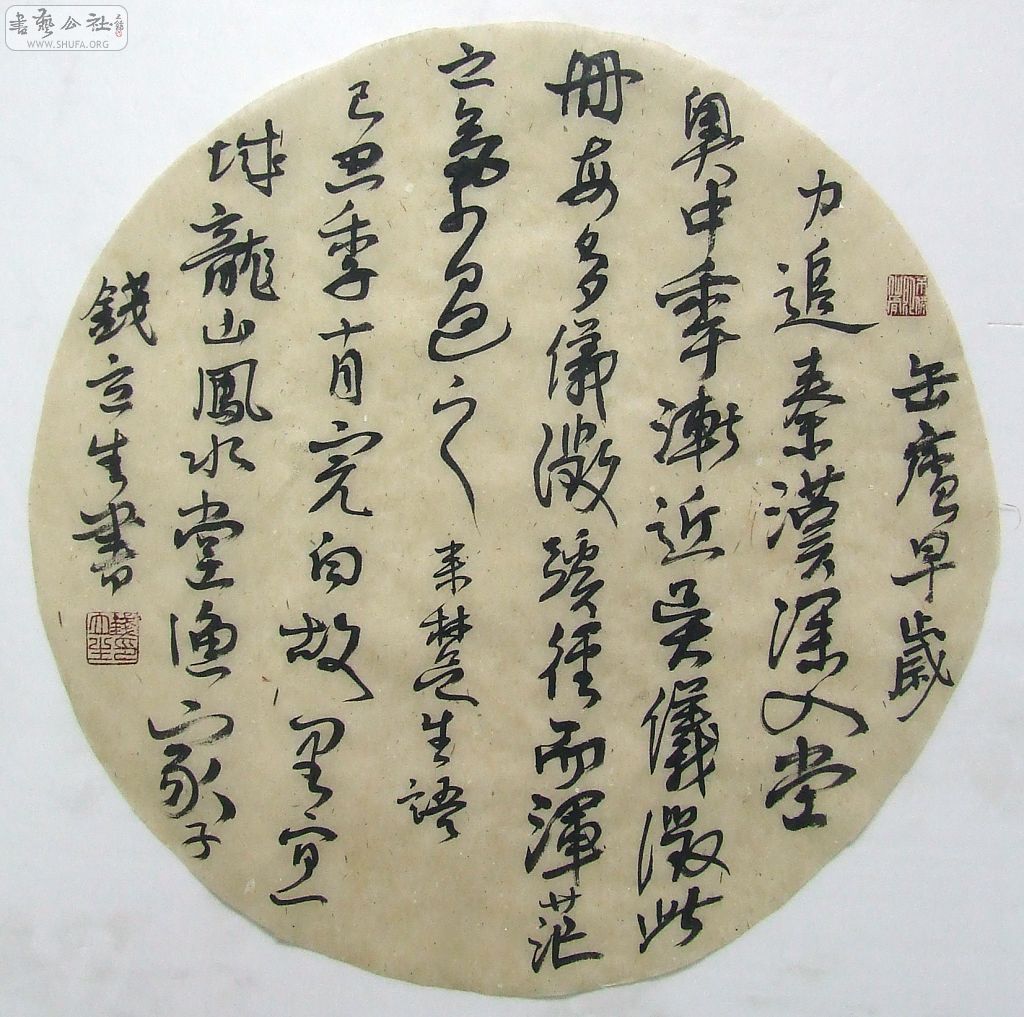 書藝公社
WWW.SHUFA.ORG
缶廬早歲
力追秦漢深入堂
奧中年漸近吳儀漵此
冊每多儀漵蹊徑而渾茫
之氣過之 来楚先生語
己丑季十月完白故里宜
城龍山鳳水堂漁家子
錢立生書